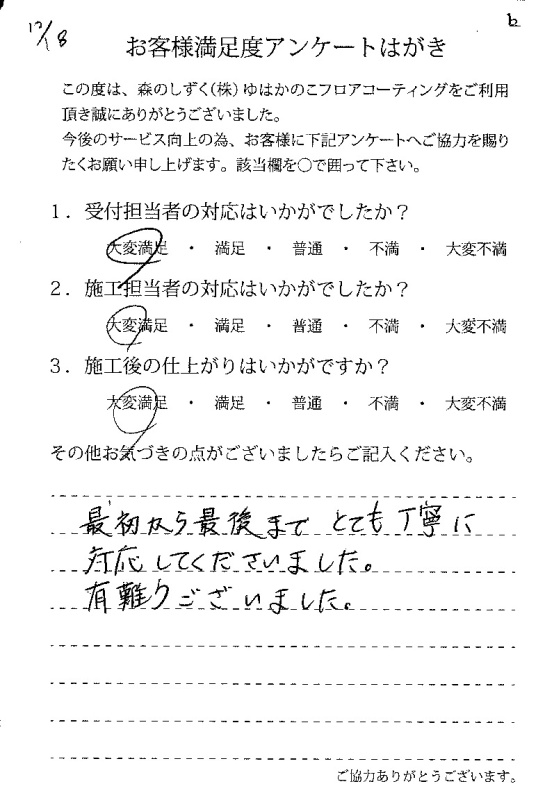 12/18
b
お客様満足度アンケートはがき
この度は、森のしずく(株)ゆはかのこフロアコーティングをご利用
頂き誠にありがとうございました。
今後のサービス向上の為、お客様に下記アンケートへご協力を賜り
たくお願い申し上げます。該当欄を○で囲って下さい。
1．受付担当者の対応はいかがでしたか？
大変満足　・　満足　・　普通　・　不満　・　大変不満
2．施工担当者の対応はいかがでしたか？
大変満足　・　満足　・　普通　・　不満　・　大変不満
3．施工後の仕上がりはいかがですか？
大変満足　・　満足　・　普通　・　不満　・　大変不満
その他お気づきの点がございましたらご記入ください。
最初から最後まで とても丁寧に
対応してくださいました。
有難うございました。
ご協力ありがとうございます。